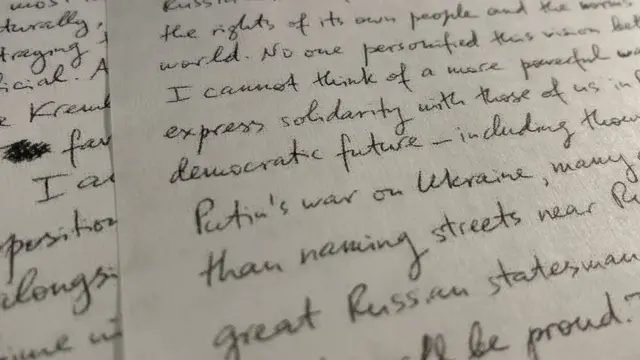 most
turally,
traging
icial. A
e Kreml
fav
I a
position
alongsi
ime wi
Russia
the rights of its own people and the norms
world. No one personified this vision be
I cannot think of a more powerful wa
express solidarity with those of us in R
democratic future – including thous
Putin's war on Ukraine, many o
than naming streets near Ru
great Russian statesman
ll be proud.